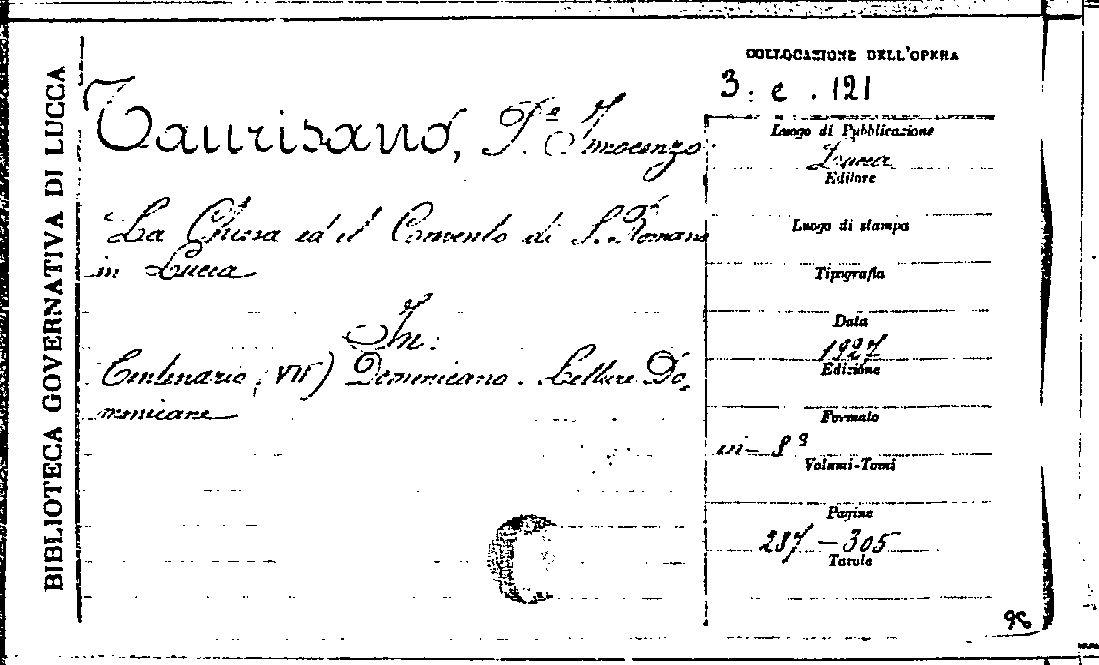 BIBLIOTECA GOVERNATIVA DI LUCCA
Taurisano, P.e Innocenzo
La Chiesa ed il Convento di S. Romano
in Lucca
In:
Centenario (VII) Domenicano. Letture Do-
menicane
COLLOCAZIONE DELL'OPERA
3. e. 121
Luogo di Pubblicazione
Lucca
Editore
Luogo di stampa
Tipografia
Data
1927
Edizione
Formato
in-8º
Volumi-Tomi
Pagine
287-305
Tavole